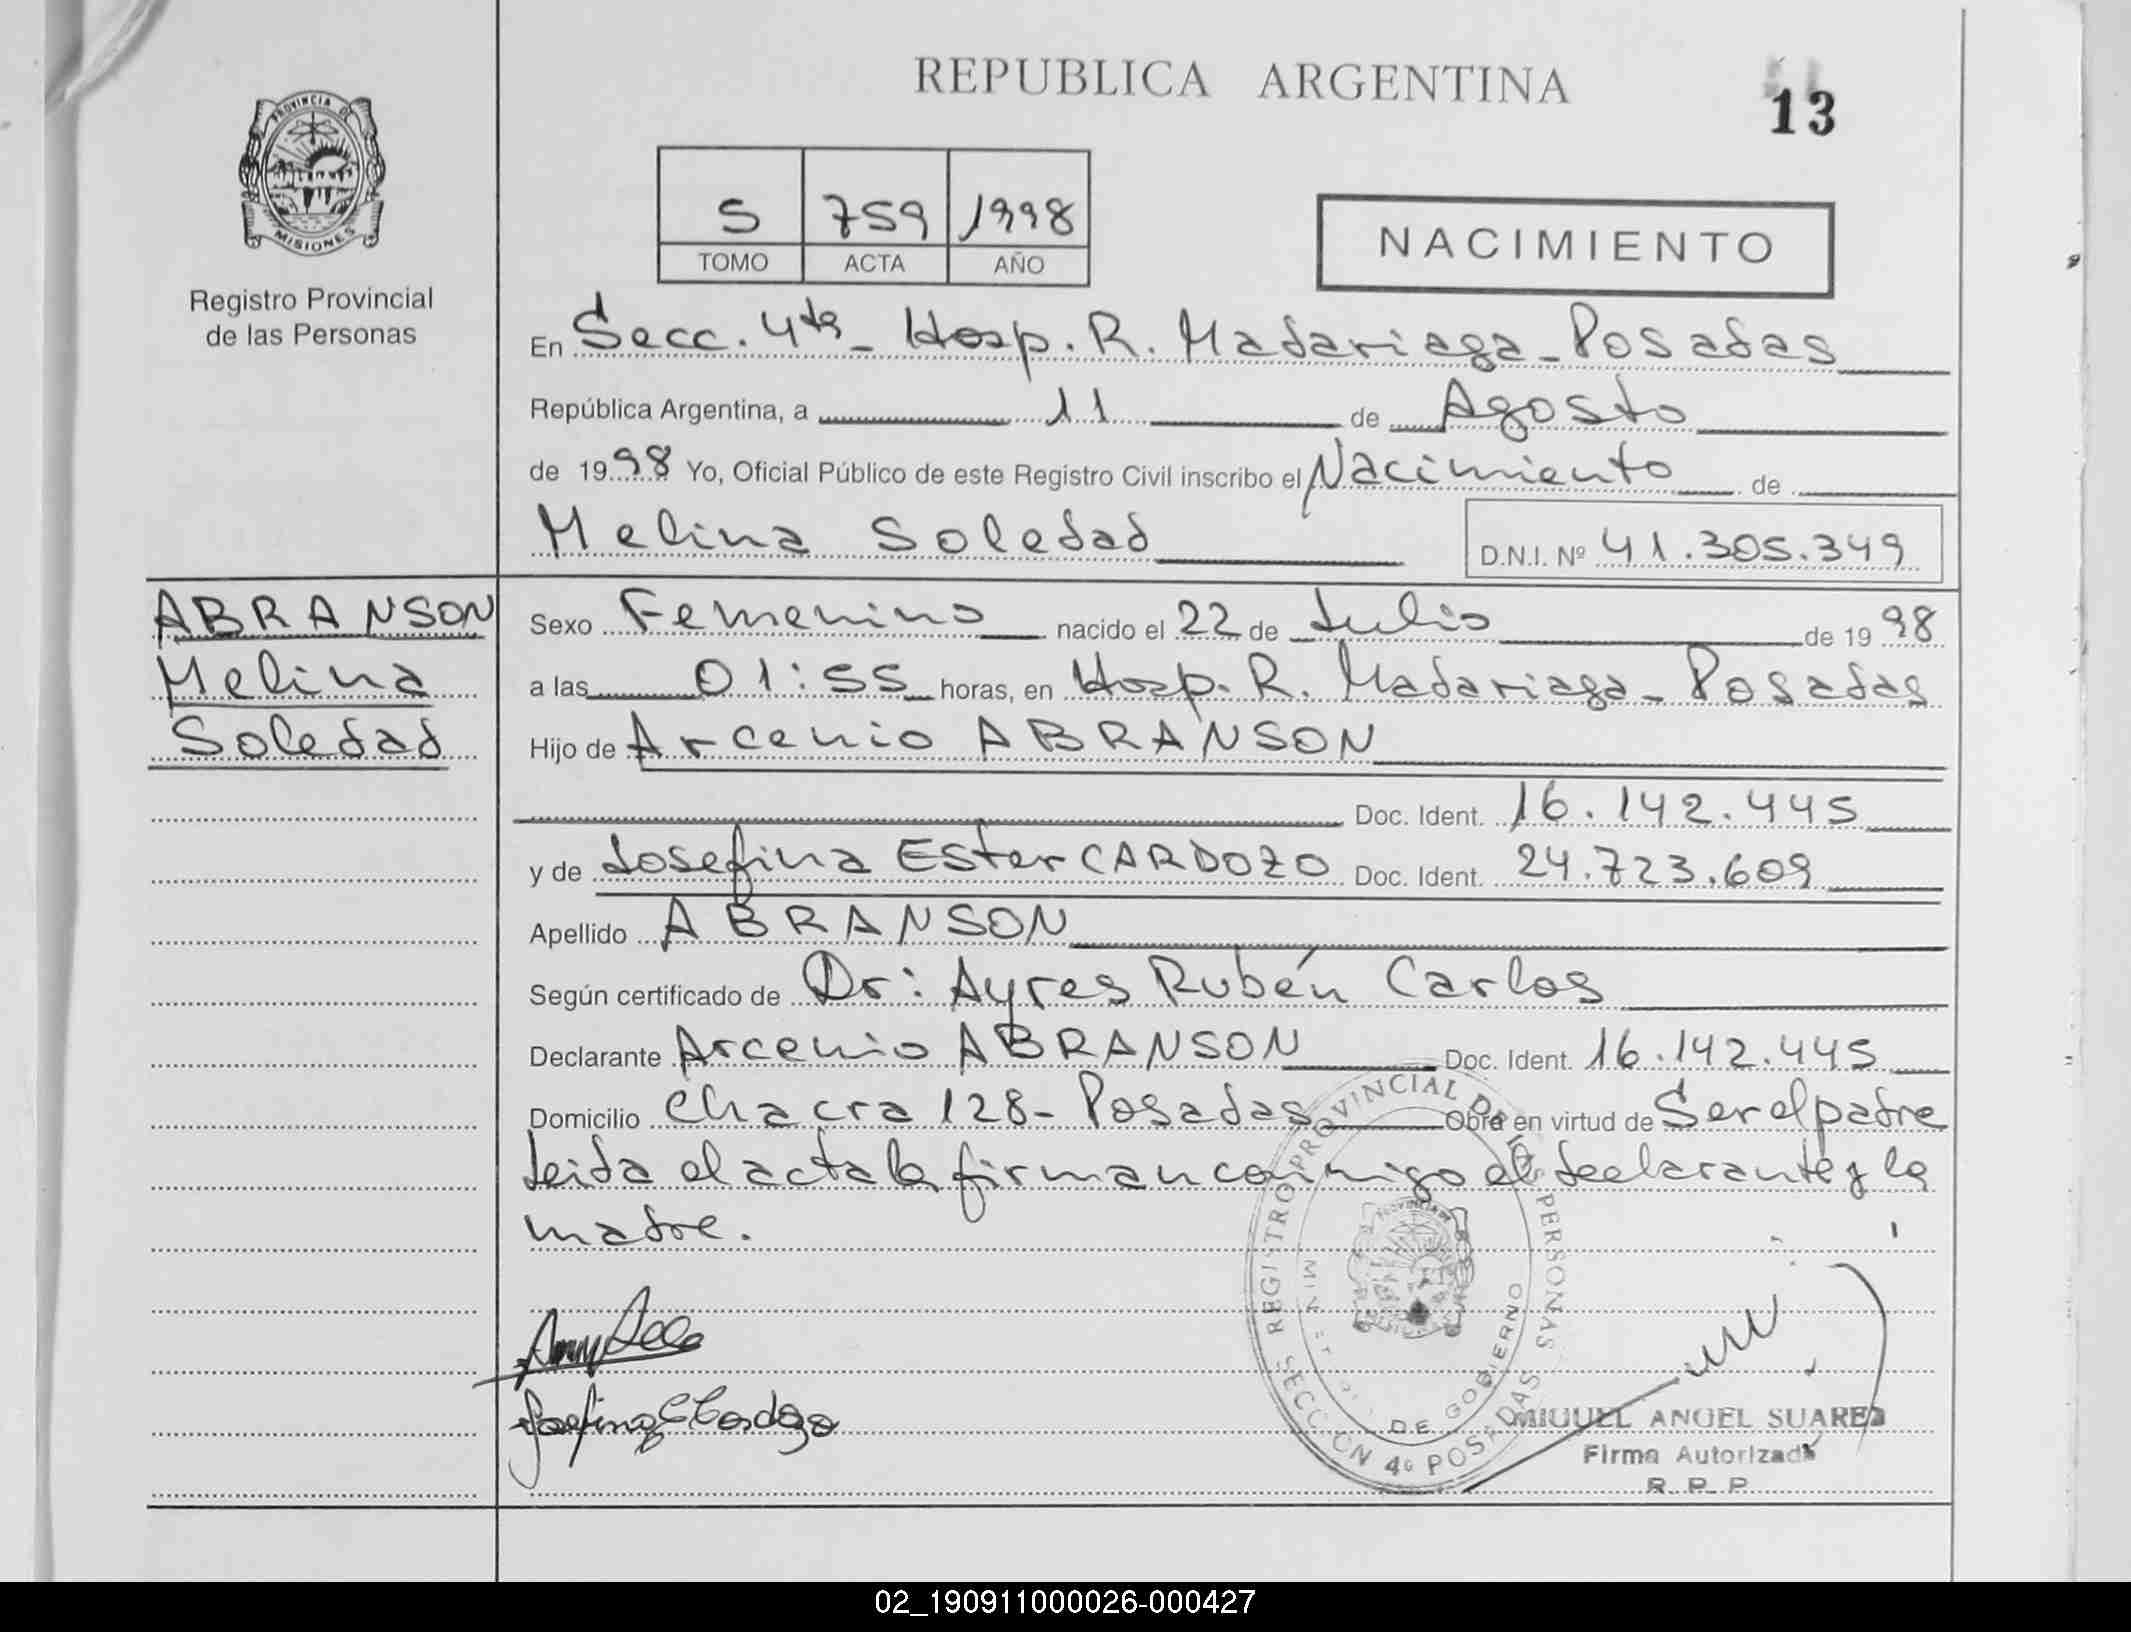 REPUBLICA ARGENTINA
13
PROVINCIA DE
MISIONES
Registro Provincial
de las Personas
5 759 1998
TOMO ACTA AÑO
NACIMIENTO
En Secc. 4ta - Hosp. R. Madariaga - Posadas
República Argentina, a 11 de Agosto
de 19 98 Yo, Oficial Público de este Registro Civil inscribo el Nacimiento de
Melina Soledad D.N.I. Nº 41.305.349
ABRANSON
Melina
Soledad
Sexo Femenino nacido el 22 de Julio de 19 98
a las 01:55 horas, en Hosp. R. Madariaga - Posadas
Hijo de Arcenio ABRANSON
Doc. Ident. 16.142.445
y de Josefina Ester CARDOZO Doc. Ident. 24.723.609
Apellido ABRANSON
Según certificado de Dr: Ayres Rubén Carlos
Declarante Arcenio ABRANSON Doc. Ident. 16.142.445
Domicilio Chacra 128 - Posadas Obra en virtud de Ser el padre
leida el acta la firman conmigo el declarante y la
madre.
Josefina E Cardozo
REGISTRO PROVINCIAL DE LAS PERSONAS
SECCION 4º POSADAS
DE GOBIERNO
MIGUEL ANGEL SUAREZ
Firma Autorizada
R. P. P.
02_190911000026-000427